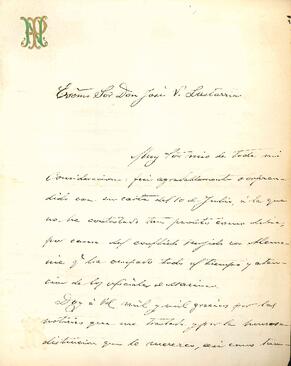 Excmo Sor Don José V. Lastarria
Muy Sor mio de toda mi
consideracion: fui agradablemente sorpren-
dido con su carta del 10 de Julio, á la que
no he contestado tan pronto como debia,
por causa del conflicto surgido con Alema-
nia q ha ocupado todo el tiempo y aten-
cion de los oficiales de Marina.
Doy á V. mil y mil gracias por las
noticias que me traslada y por la
distincion que le merezco, asi como